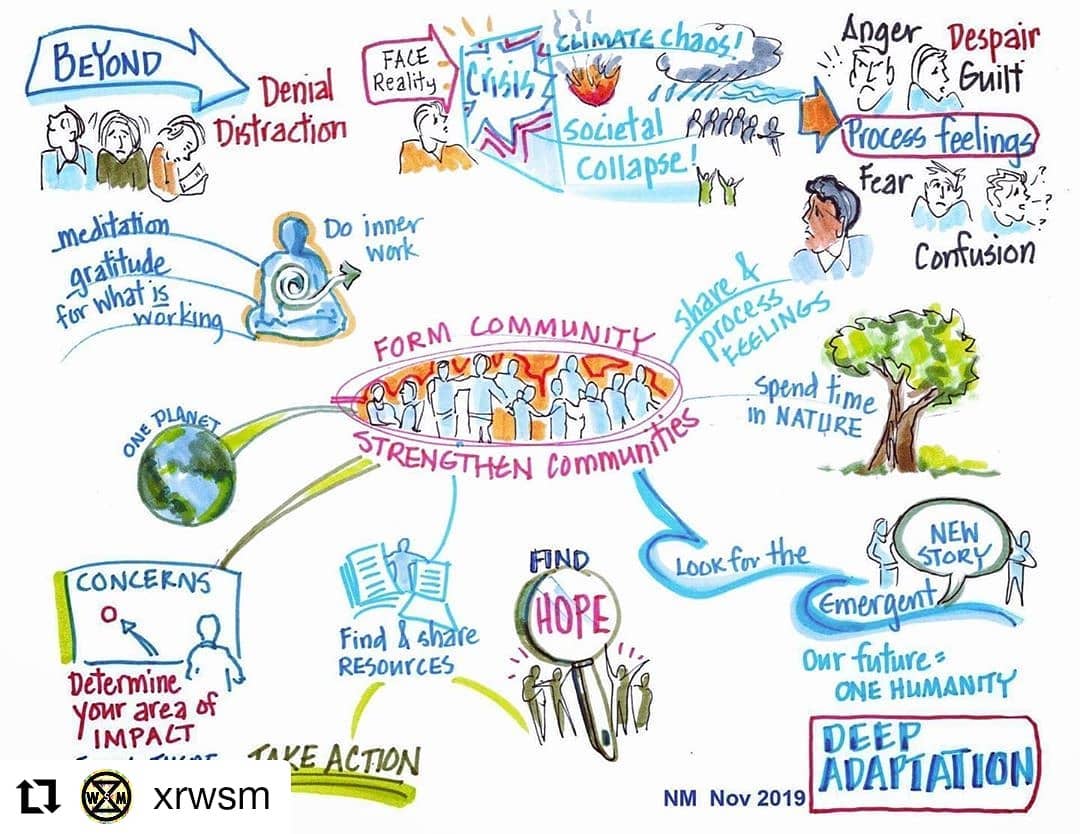 BEYOND
Denial
Distraction
FACE
Reality
Crisis
CLIMATE Chaos!
Societal
Collapse!
Anger
Despair
Guilt
Process feelings
Fear
Confusion
meditation
gratitude
for what is
working
Do inner
work
share &
process
FEELINGS
FORM COMMUNITY
STRENGTHEN Communities
Spend time
in NATURE
ONE PLANET
CONCERNS
Determine
your area of
IMPACT
Find & share
RESOURCES
FIND
HOPE
LOOK for the
Emergent
NEW
STORY
Our future =
ONE HUMANITY
TAKE ACTION
DEEP
ADAPTATION
NM Nov 2019
WSM
xrwsm